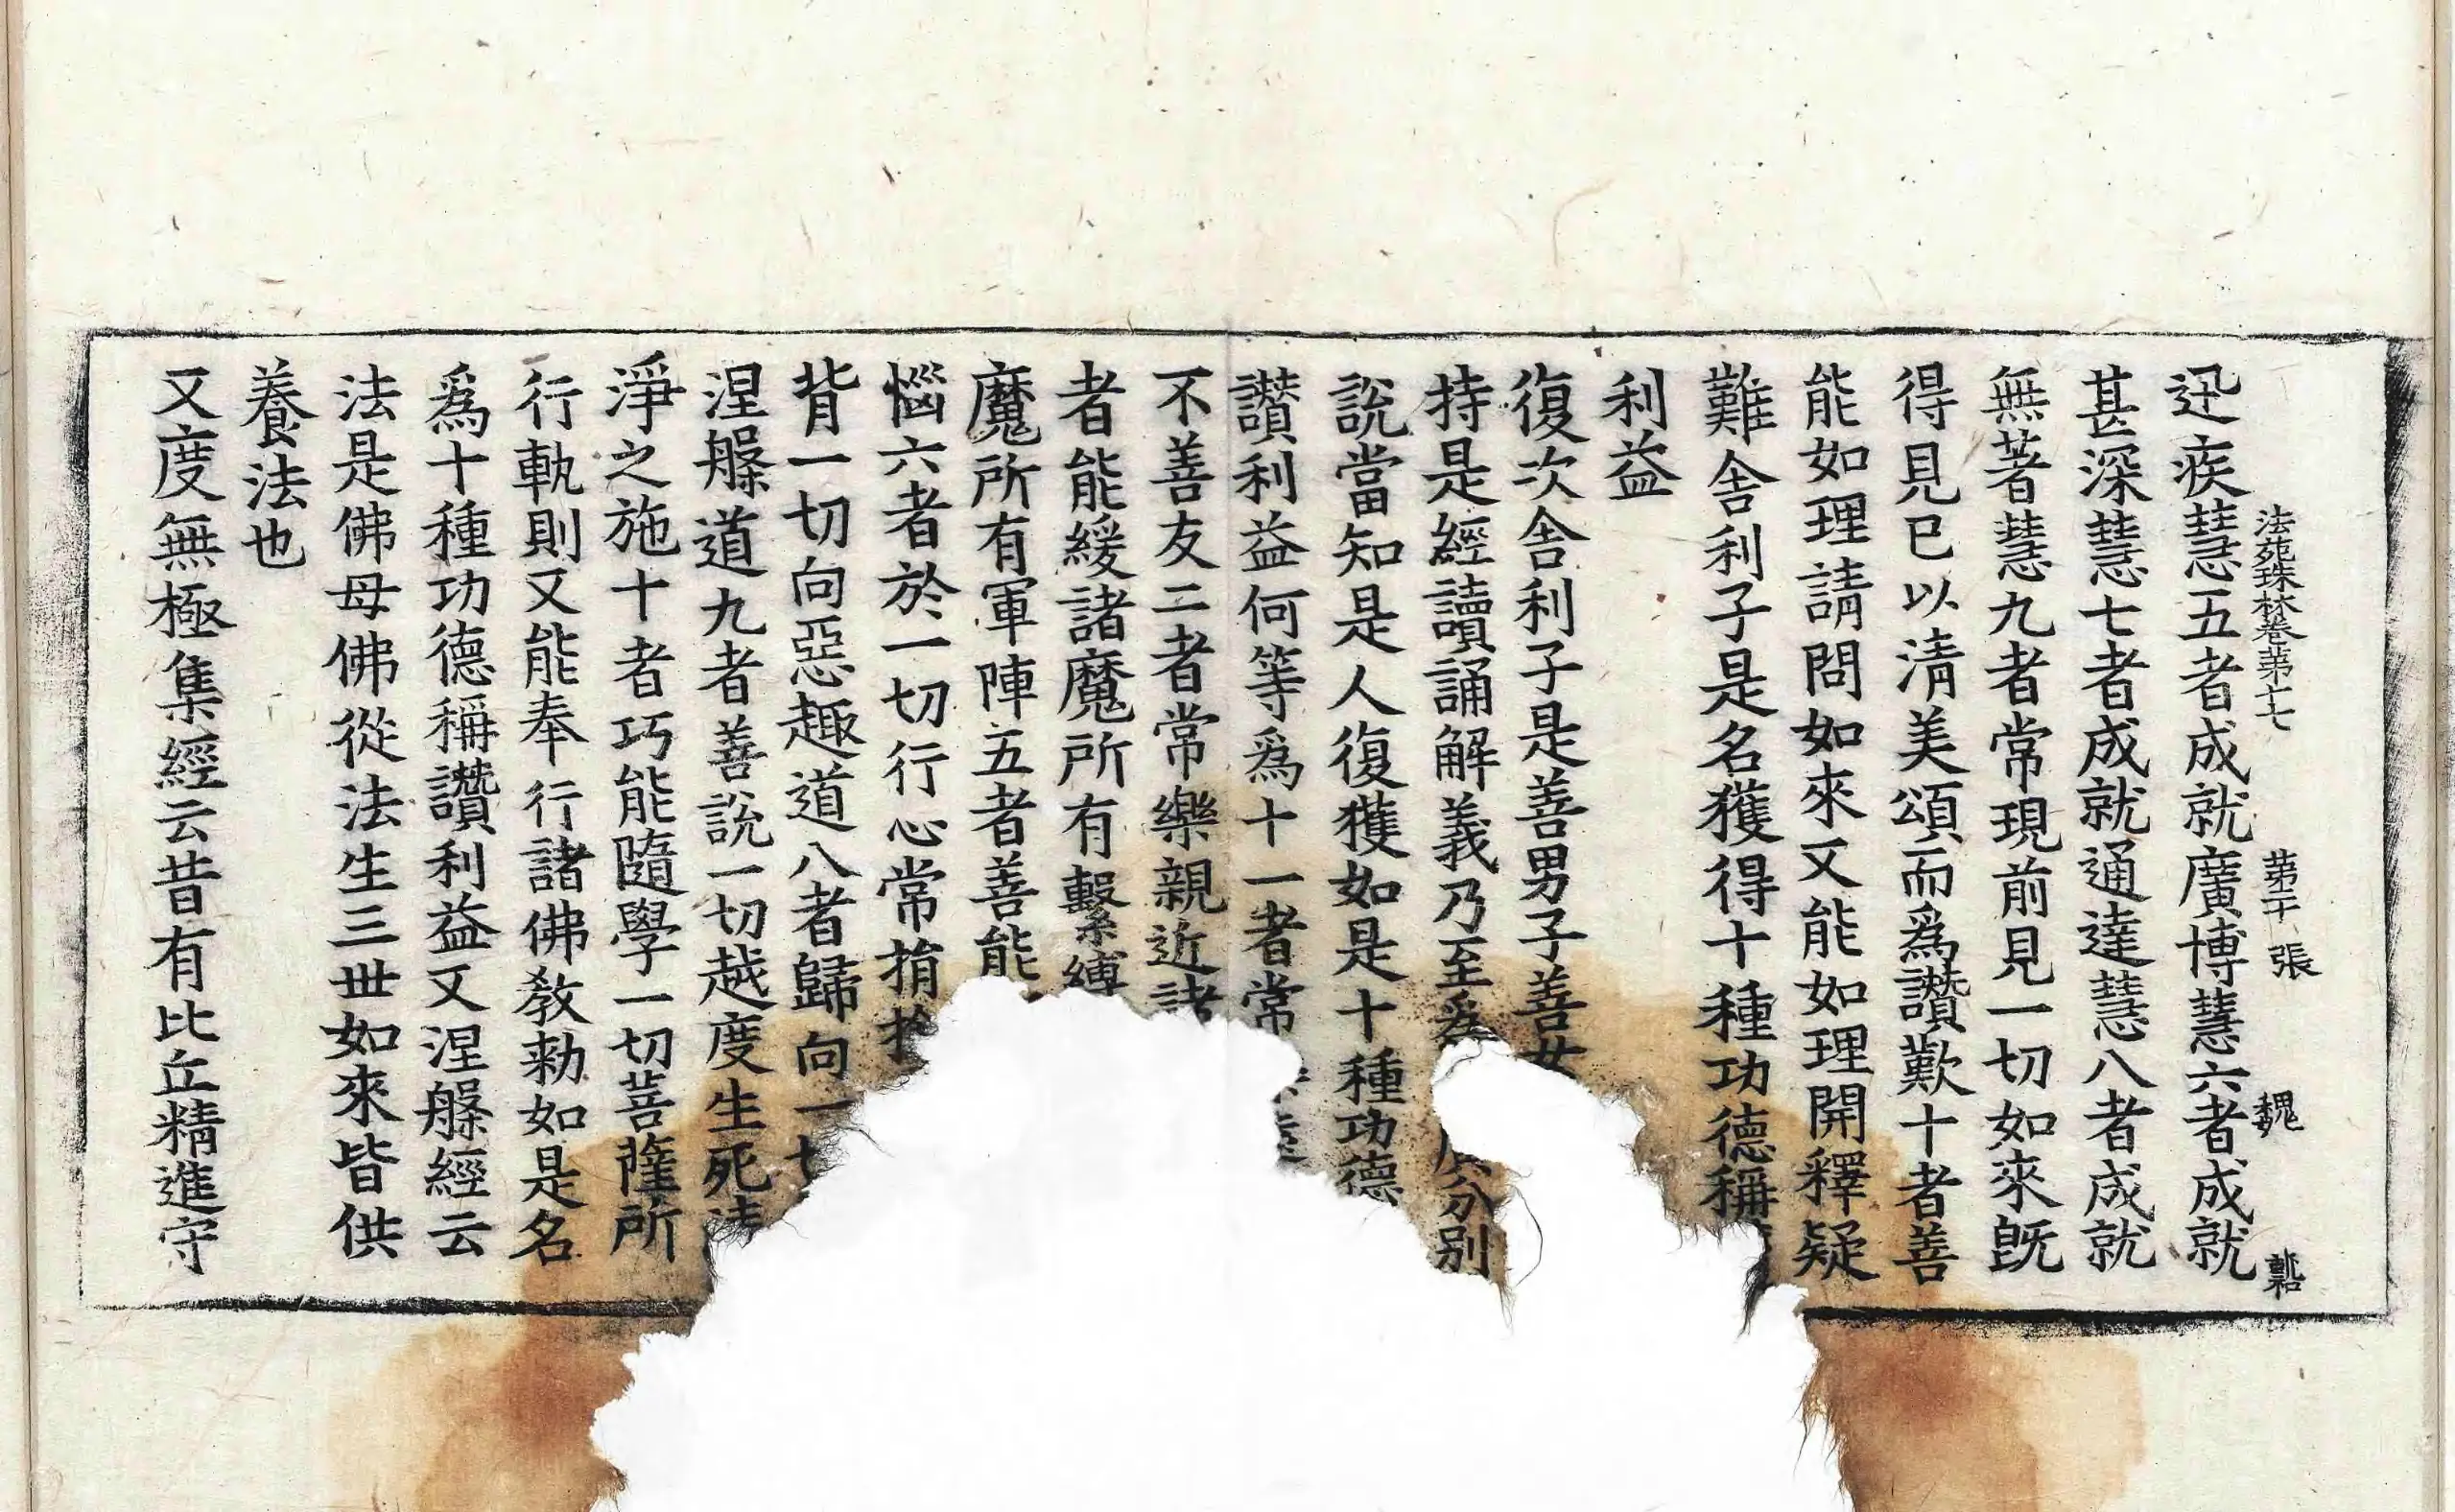 法苑珠林卷苐十七 苐二十張 魏 㲉
迅疾慧五者成就廣博慧六者成就
甚深慧七者成就通達慧八者成就
無著慧九者常現前見一切如來旣
得見已以清美頌而爲讚歎十者善
能如理請問如來又能如理開釋疑
難舍利子是名獲得十種功德稱
利益
復次舍利子是善男子善女
持是經讀誦解義乃至爲 分別
說當知是人復獲如是十種功德
讚利益何等爲十一者常
不善友二者常樂親近諸
者能緩諸魔所有繫縛
魔所有軍陣五者善能
惱六者於一切行心常捐捨
背一切向惡趣道八者歸向一切
涅槃道九者善說一切越度生死清
淨之施十者巧能隨學一切菩薩所
行軌則又能奉行諸佛教勑如是名
爲十種功德稱讚利益又涅槃經云
法是佛母佛從法生三世如來皆供
養法也
又度無極集經云昔有比丘精進守